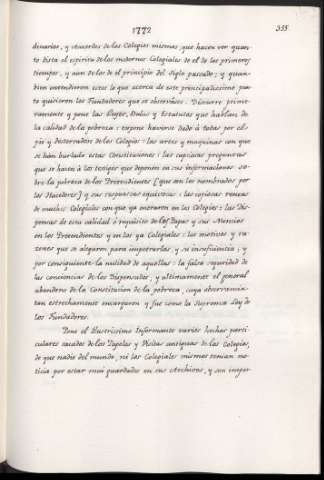 1772
335
dinarios, y Acuerdos de los Colegios mismos, que hacen ver quan-
to dista el espiritu de los modernos Colegiales de el de los primeros
tiempos, y aun de los de el principio del Siglo pasado; y quan
bien entendieron estos lo que acerca de este principalissimo pun-
to quisieron los Fundadores que se observáse. Discurre prime-
ramente y pone las Leyes, Bulas y Estatutos que hablan de
la calidad de la pobreza: expone haverse dado à todas por el
pie y desterradose de los Colegios: las artes y maquinas con que
se han burlado estas Constituciones: las capciosas preguntas
que se hacen à los testigos que deponen en sus informaciones so-
bre la pobreza de los Pretendientes [que son los nombrados por
los Hacedores] y sus respuestas equivocas: las copiosas rentas
de muchos Colegiales con que ya moraron en los Colegios: las Dis-
pensas de esta calidad ò requisito de los Papas y sus Nuncios
en los Pretendientes y en los ya Colegiales: los motivos y ra-
zones que se alegaron para impetrarlas, y su insuficiencia; y
por consiguiente la nulidad de aquellas: la falsa seguridad de
las conciencias de los Dispensados, y ultimamente el general
abandono de la Constitucion de la pobreza, cuya observancia
tan estrechamente encargaron y fue como la Suprema Ley de
los Fundadores.
Pone el Ilustrissimo Informante varios hechos parti-
culares sacados de los Papeles y Visitas antiguas de los Colegios,
de que nadie del mundo, ni los Colegiales mismos tenian no-
ticia por estar mui guardados en sus Archivos, y son impor-